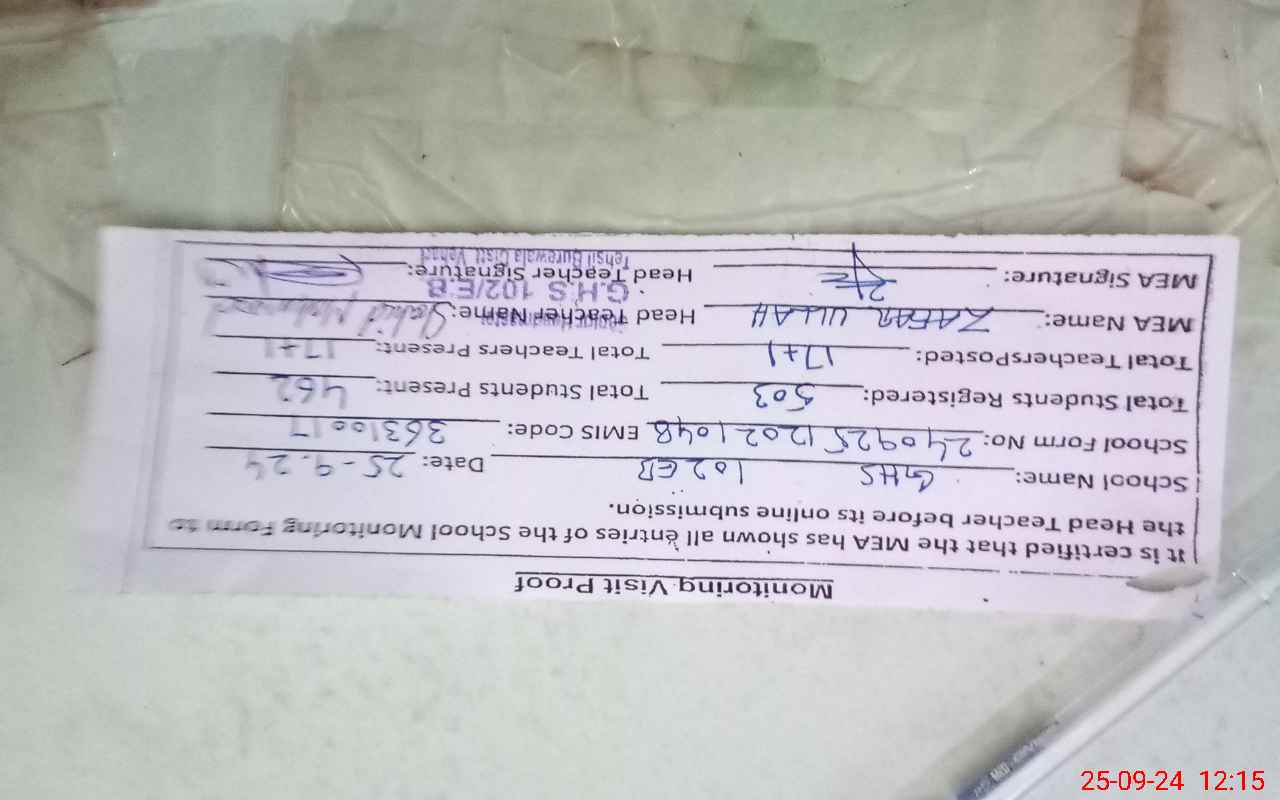 Monitoring Visit Proof
It is certified that the MEA has shown all entries of the School Monitoring Form to
the Head Teacher before its online submission.
School Name: GHS 102 EB Date: 25-9-24
School Form No: 24092512021048 EMIS Code: 36310017
Total Students Registered: 503 Total Students Present: 462
Total TeachersPosted: 17+1 Total Teachers Present: 17+1
MEA Name: ZAFAR ULLAH Head Teacher Name:
G.H.S 102/E.B
MEA Signature: Head Teacher Signature:
Tehsil Burewala Distt. Vehari
25-09-24 12:15